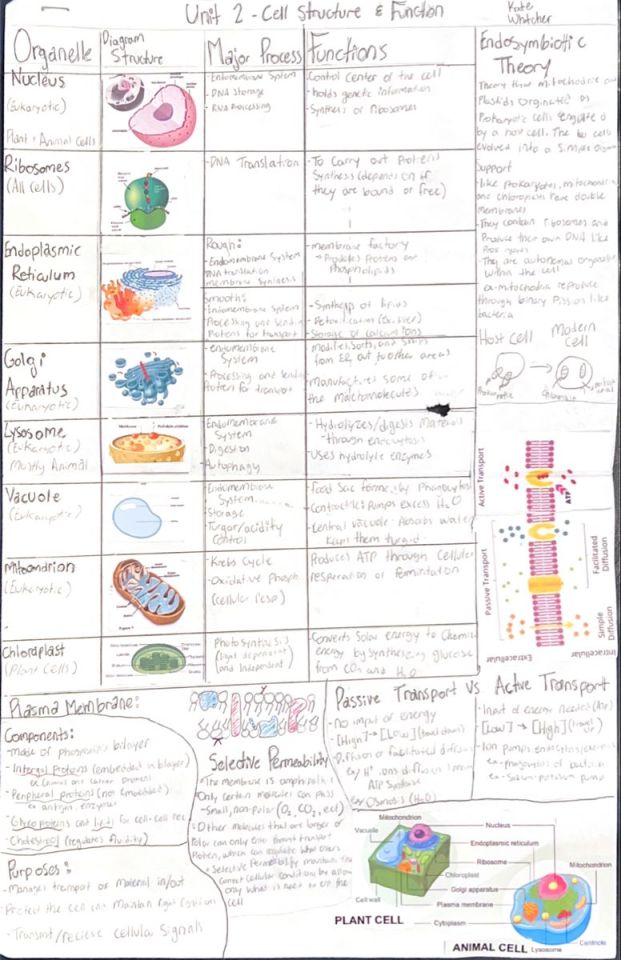 Unit 2 - Cell Structure & Function
Kate
Whitcher
Organelle
Diagram
Structure
Major Process
Functions
Nucleus
(Eukaryotic)
Plant + Animal Cells
Endomembrane System
- DNA Storage
- RNA Processing
Control Center of the cell
- holds genetic information
- Synthesis of Ribosomes
Ribosomes
(All Cells)
- DNA Translation
- To Carry out Protein
Synthesis (depends on if
they are bound or free)
Endoplasmic
Reticulum
(Eukaryotic)
Rough:
- Endomembrane System
RNA translation
membrane synthesis
- membrane factory
Produces Proteins and
Phospholipids
Smooth:
Endomembrane System
Processing and
Proteins for transport
- Synthesis of
- Detoxification (Ex. liver)
- Storage of calcium ions
Golgi
Apparatus
(Eukaryotic)
- endomembrane
System
- Processing and
Protein for
modifies, sorts, and ships
from ER out to other areas
- manufactures some of
the macromolecules
Lysosome
(Eukaryotic)
Mostly Animal
Endomembrane
System
- Digestion
Autophagy
- Hydrolyzes/digests Materials
through endocytosis
- Uses hydrolytic enzymes
Vacuole
(Eukaryotic)
Endomembrane
System
- Storage
- Turgor/acidity
Control
- Food Sac formed by Phagocytosis
- Contractile: Pumps excess H₂O
- Central vacuole: Absorbs water
Keeps them turgid
Mitochondrion
(Eukaryotic)
- Krebs Cycle
- Oxidative Phosph
(cellular resp)
Produces ATP through Cellular
respiration or fermentation
Chloroplast
(Plant Cells)
Photosynthesis
(light dependent
and Independent)
- Converts Solar energy to Chemical
energy by Synthesizing glucose
from CO₂ and H₂O
Endosymbiotic
Theory
Theory that mitochondria and
Plastids Originated as
Prokaryotic Cells engulfed
by a host cell. The two cells
evolved into a Single
Support
- like Prokaryotes, mitochondria
and chloroplasts have double
membranes
- They contain ribosomes and
Produce their own DNA like
Prokaryotes
- They are autonomous organelles
within the cell
ex. mitochondria reproduce
through binary fission like
bacteria
Host Cell
Modern
Cell
Active Transport
ATP
Passive Transport
Facilitated
Diffusion
Simple
Diffusion
Extracellular
Intracellular
Plasma Membrane:
Components:
- made of phospholipid bilayer
- Integral Proteins (embedded in bilayer)
ex Channel and carrier proteins
- Peripheral proteins (not embedded)
ex antigens, enzymes
- Glycoproteins and lipids for cell-cell rec
- Cholesterol (regulates fluidity)
Purposes:
- Manages transport of material in/out
Protect the cell and maintain right conditions
- Transmit/recieve cellular signals
Selective Permeability
The membrane is amphipathic
Only certain molecules can pass
- Small, non-polar (O₂, CO₂, ect)
- Other molecules that are larger or
Polar can only enter through transport
Protein, which can regulate who enters
- Selective Permeability maintains the
correct cellular conditions by allowing
only what is need to in the
cell
Passive Transport vs Active Transport
- No input of energy
[High] → [Low]
- Diffusion or facilitated diffusion
ex/ H⁺ ions diffusion
ATP Synthase
ex/ Osmosis (H₂O)
- Input of energy needed (ATP)
[Low] → [High]
- Ion pumps, endocytosis/exocytosis
ex - phagocytosis of bacteria
ex - Sodium-potassium pump
Mitochondrion
Nucleus
Vacuole
Endoplasmic reticulum
Mitochondrion
Ribosome
Chloroplast
Golgi apparatus
Cell wall
Plasma membrane
PLANT CELL
Cytoplasm
ANIMAL CELL
Lysosome
Centriole